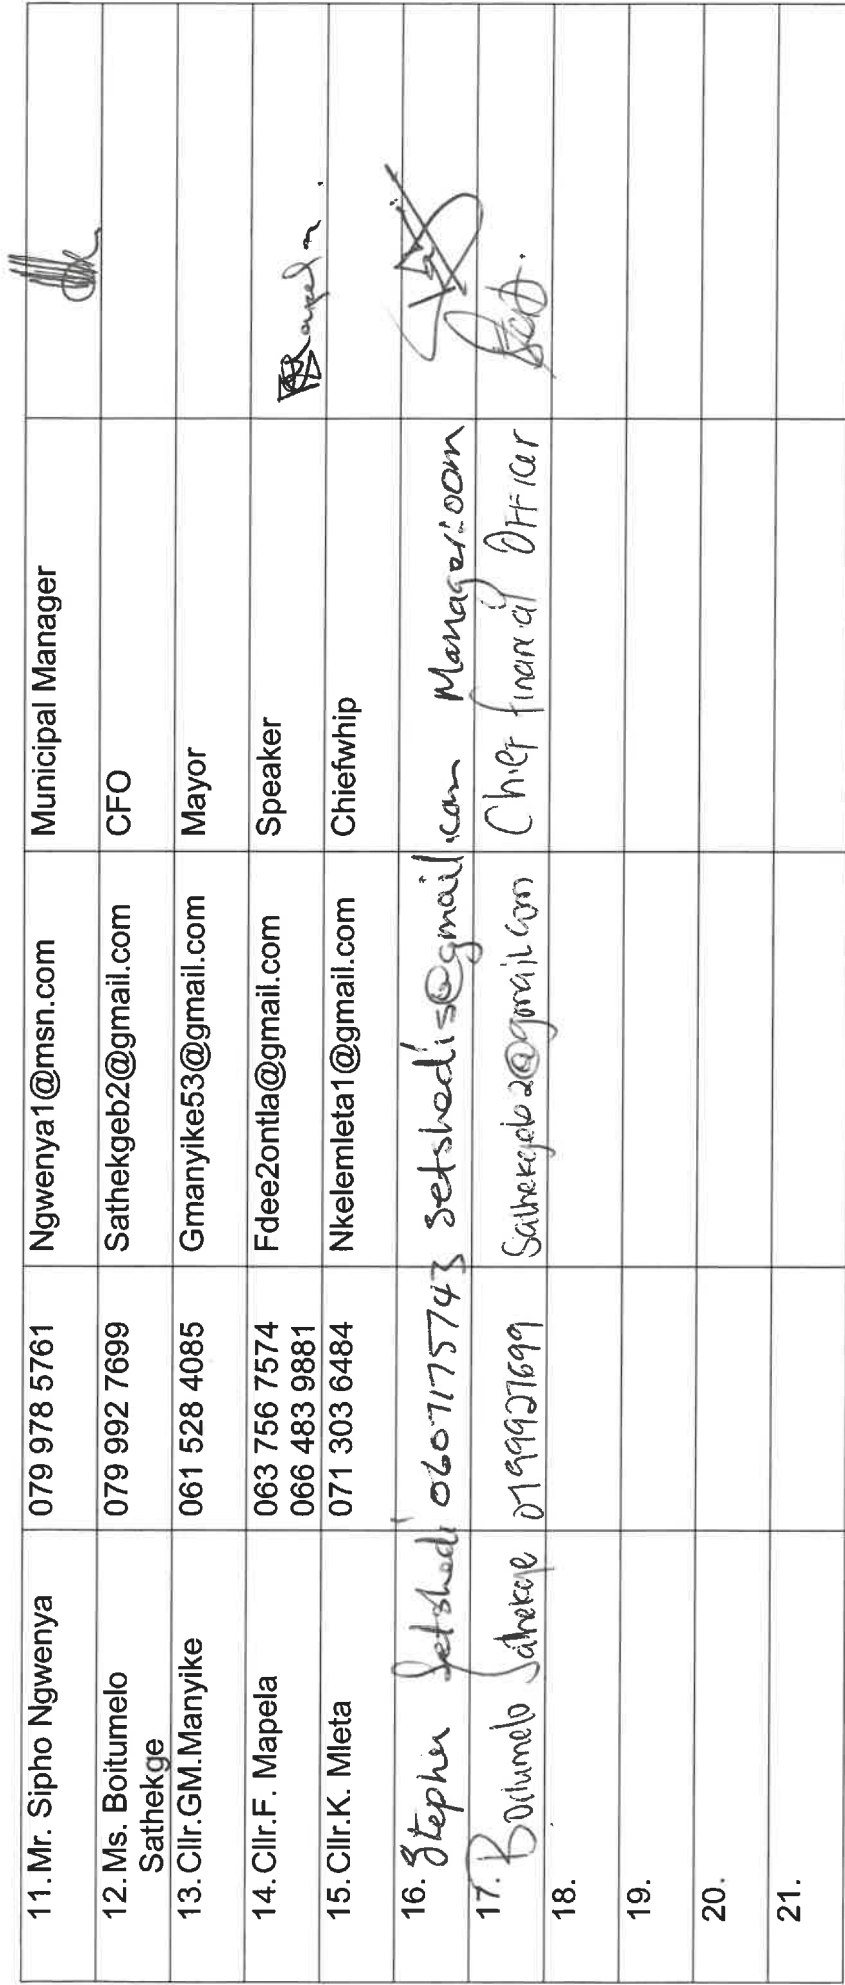 11. Mr. Sipho Ngwenya 079 978 5761 Ngwenya1@msn.com Municipal Manager
12. Ms. Boitumelo 079 992 7699 Sathekgeb2@gmail.com CFO
Sathekge
13. Cllr.GM.Manyike 061 528 4085 Gmanyike53@gmail.com Mayor
14. Cllr.F. Mapela 063 756 7574 Fdee2ontla@gmail.com Speaker
066 483 9881
15. Cllr.K. Mleta 071 303 6484 Nkelemleta1@gmail.com Chiefwhip
16. Stephen Setshedi 0607175743 setshedis@gmail.com Manager:
17. Boitumelo Sathekge 0799927699 Sathekgeb2@gmail.com Chief Financial Officer
18.
19.
20.
21.